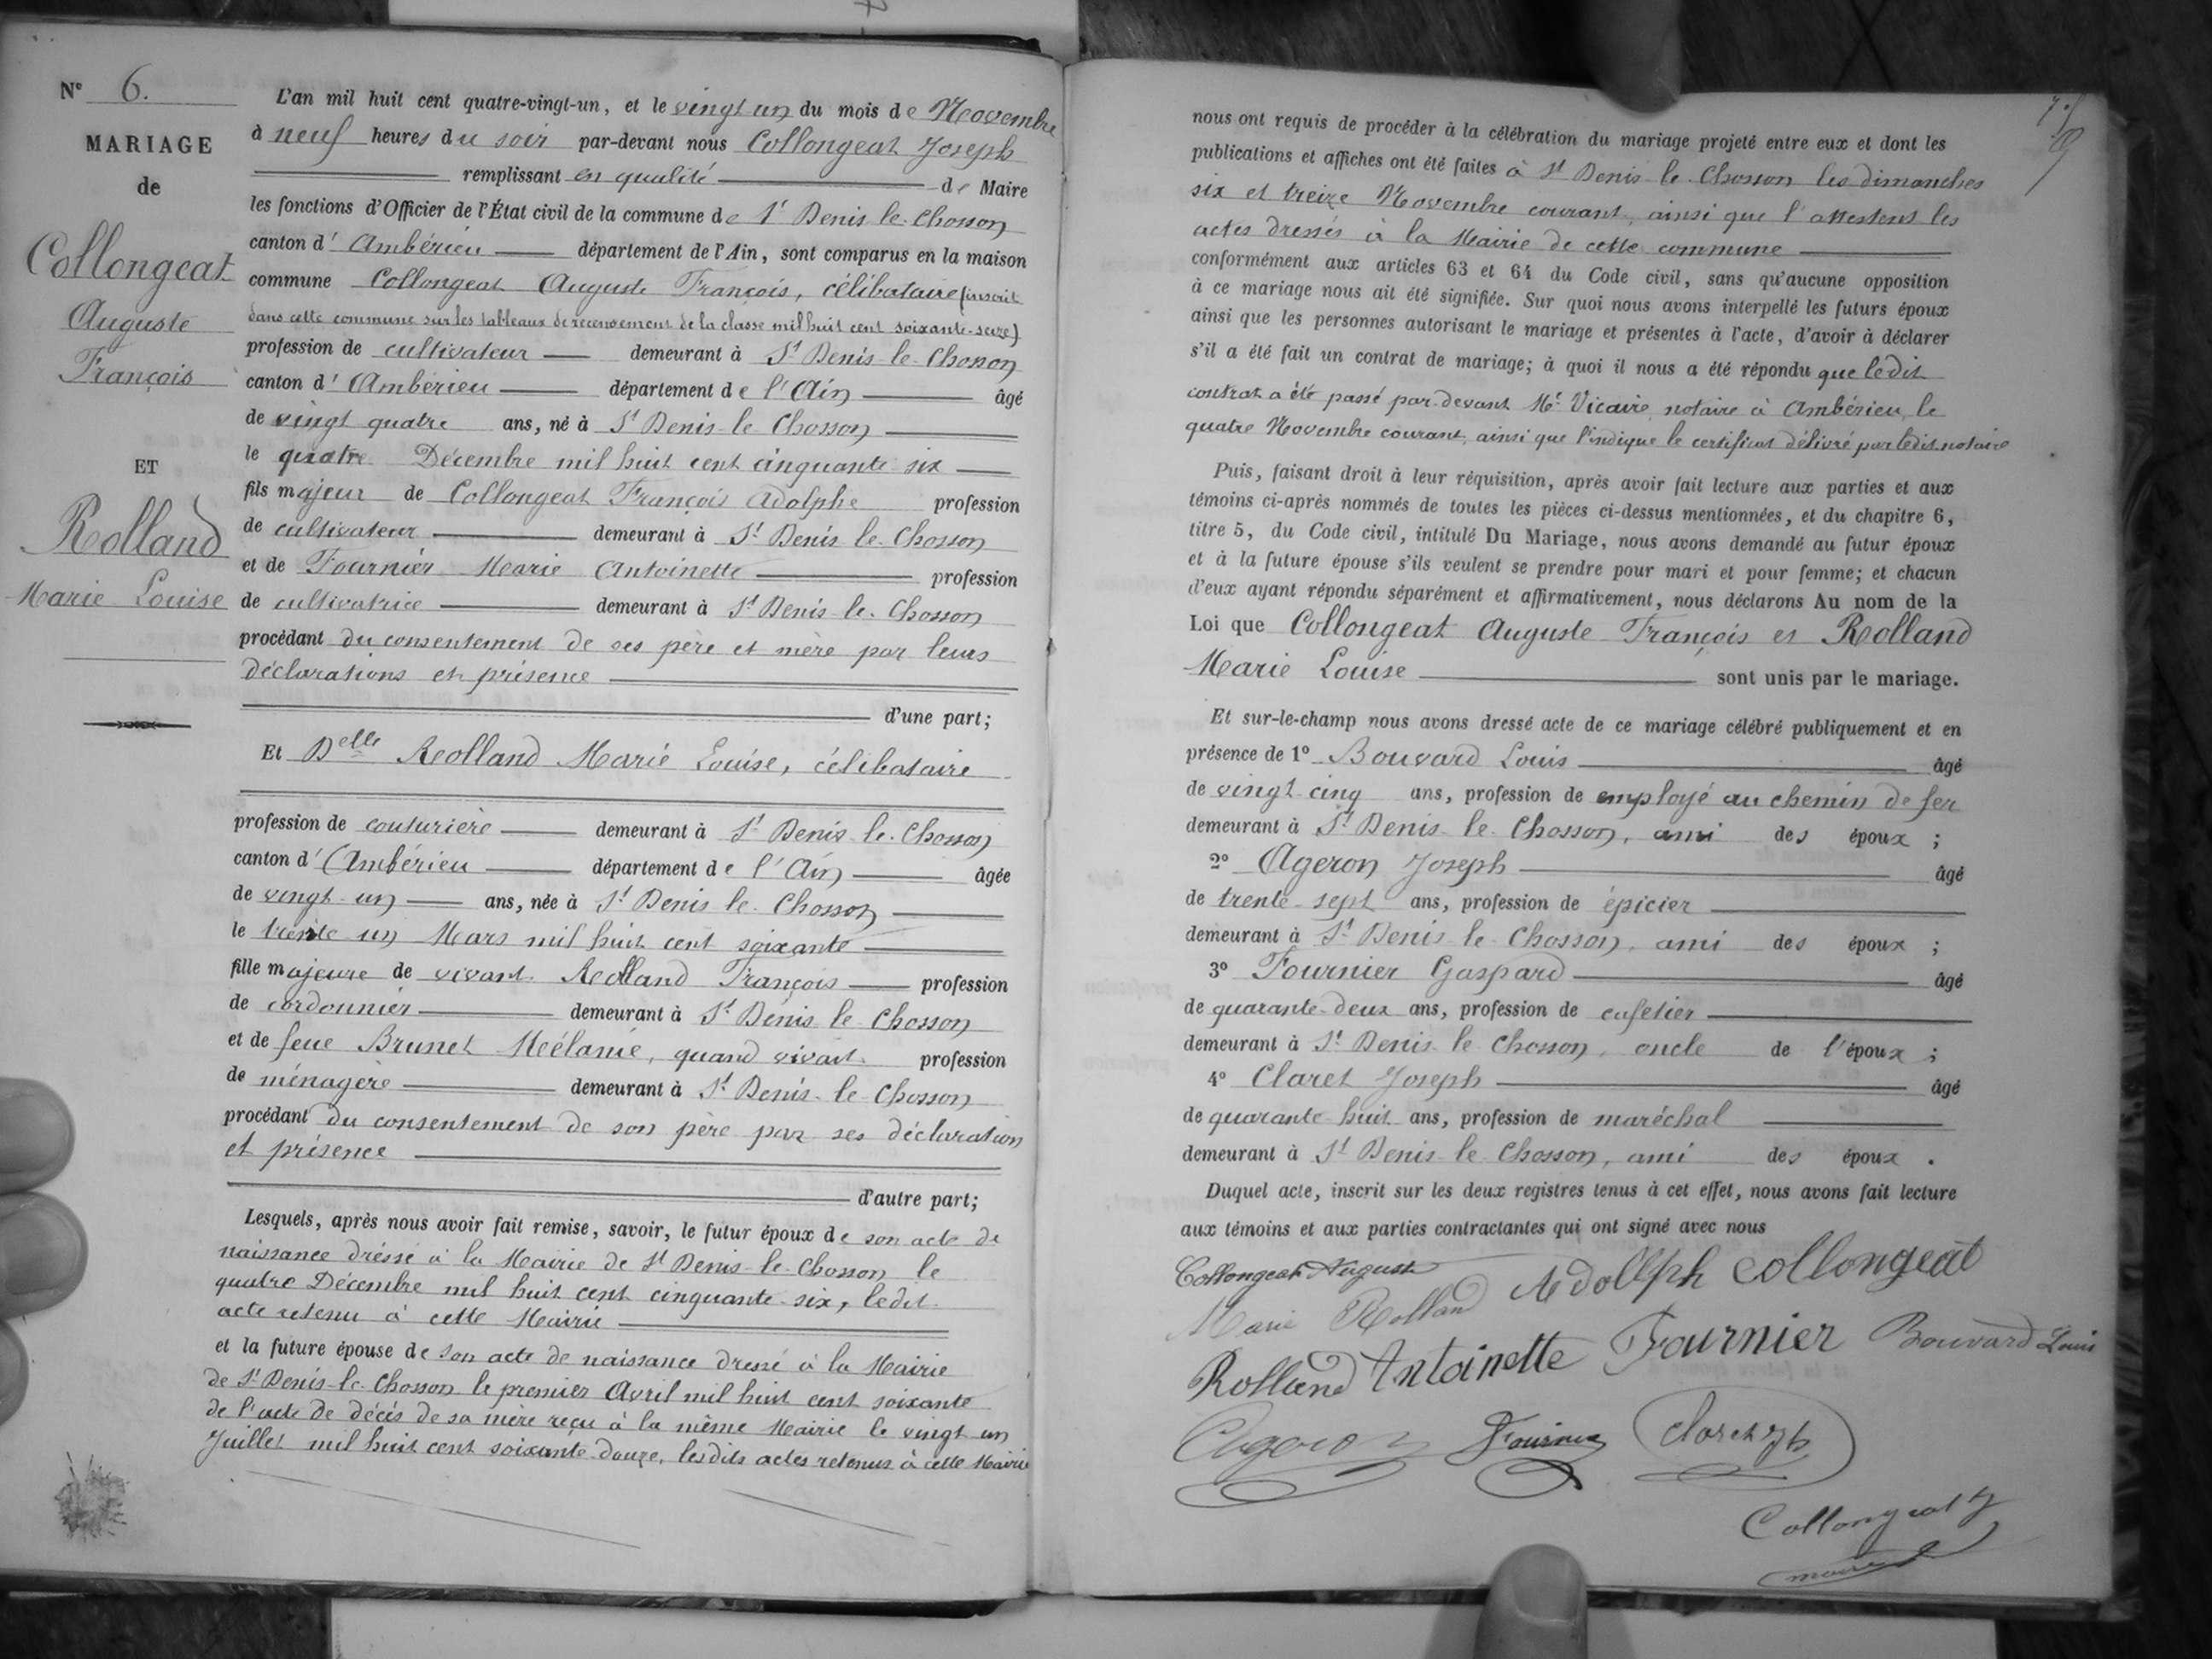 N° 6.
MARIAGE
de
Collongeat
Auguste
François
ET
Rolland
Marie Louise
L'an mil huit cent quatre-vingt-un, et le vingt un du mois de Novembre
à neuf heures du soir par-devant nous Collongeat Joseph
remplissant en qualité de Maire
les fonctions d'Officier de l'État civil de la commune de St Denis le Chosson
canton d' Ambérieu département de l'Ain, sont comparus en la maison
commune Collongeat Auguste François, célibataire (inscrit
dans cette commune sur les tableaux de recensement de la classe mil huit cent soixante-seize)
profession de cultivateur demeurant à St Denis-le-Chosson
canton d' Ambérieu département de l'Ain âgé
de vingt quatre ans, né à St Denis-le Chosson
le quatre Décembre mil huit cent cinquante six
fils majeur de Collongeat François Adolphe profession
de cultivateur demeurant à St Denis le Chosson
et de Fournier Marie Antoinette profession
de cultivatrice demeurant à St Denis-le-Chosson
procédant du consentement de ses père et mère par leurs
déclarations et présence
d'une part;
Et Delle Rolland Marie Louise, célibataire
profession de couturière demeurant à St Denis-le-Chosson
canton d' Ambérieu département de l'Ain âgée
de vingt-un ans, née à St Denis le Chosson
le trente un Mars mil huit cent soixante
fille majeure de vivant Rolland François profession
de cordonnier demeurant à St Denis le Chosson
et de feue Brunet Mélanie, quand vivait profession
de ménagère demeurant à St Denis-le-Chosson
procédant du consentement de son père par ses déclaration
et présence
d'autre part;
Lesquels, après nous avoir fait remise, savoir, le futur époux de son acte de
naissance dressé à la Mairie de St Denis-le-Chosson le
quatre Décembre mil huit cent cinquante-six, ledit
acte retenu à cette Mairie
et la future épouse de son acte de naissance dressé à la Mairie
de St Denis-le-Chosson le premier Avril mil huit cent soixante
de l'acte de décès de sa mère reçu à la même Mairie le vingt un
Juillet mil huit cent soixante-douze, lesdits actes retenus à cette Mairie
nous ont requis de procéder à la célébration du mariage projeté entre eux et dont les
publications et affiches ont été faites à St Denis-le-Chosson les dimanches
six et treize Novembre courant, ainsi que l'attestent les
actes dressés à la Mairie de cette commune
conformément aux articles 63 et 64 du Code civil, sans qu'aucune opposition
à ce mariage nous ait été signifiée. Sur quoi nous avons interpellé les futurs époux
ainsi que les personnes autorisant le mariage et présentes à l'acte, d'avoir à déclarer
s'il a été fait un contrat de mariage; à quoi il nous a été répondu que ledit
contrat a été passé par-devant Me Vicaire, notaire à Ambérieu, le
quatre Novembre courant, ainsi que l'indique le certificat délivré par ledit notaire
Puis, faisant droit à leur réquisition, après avoir fait lecture aux parties et aux
témoins ci-après nommés de toutes les pièces ci-dessus mentionnées, et du chapitre 6,
titre 5, du Code civil, intitulé Du Mariage, nous avons demandé au futur époux
et à la future épouse s'ils veulent se prendre pour mari et pour femme; et chacun
d'eux ayant répondu séparément et affirmativement, nous déclarons Au nom de la
Loi que Collongeat Auguste François et Rolland
Marie Louise sont unis par le mariage.
Et sur-le-champ nous avons dressé acte de ce mariage célébré publiquement et en
présence de 1° Bouvard Louis âgé
de vingt-cinq ans, profession de employé au chemin de fer
demeurant à St Denis-le-Chosson, ami des époux ;
2° Ageron Joseph âgé
de trente-sept ans, profession de épicier
demeurant à St Denis-le-Chosson, ami des époux ;
3° Fournier Gaspard âgé
de quarante-deux ans, profession de cafetier
demeurant à St Denis-le-Chosson, oncle de l'époux ;
4° Claret Joseph âgé
de quarante-huit ans, profession de maréchal
demeurant à St Denis-le-Chosson, ami des époux .
Duquel acte, inscrit sur les deux registres tenus à cet effet, nous avons fait lecture
aux témoins et aux parties contractantes qui ont signé avec nous
Collongeat Auguste
Marie Rolland Adolph Collongeat
Rolland Antoinette Fournier Bouvard Louis
Ageron Fournier Claret Jh
Collongeat J
maire